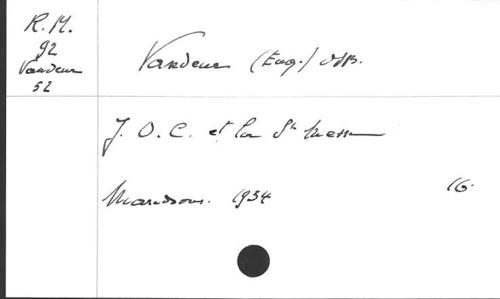 R. M.
92
Vandeur
52
Vandeur (Eug.) OSB.
J. O. C. et la Ste Messe
Maredsous. 1934
16.